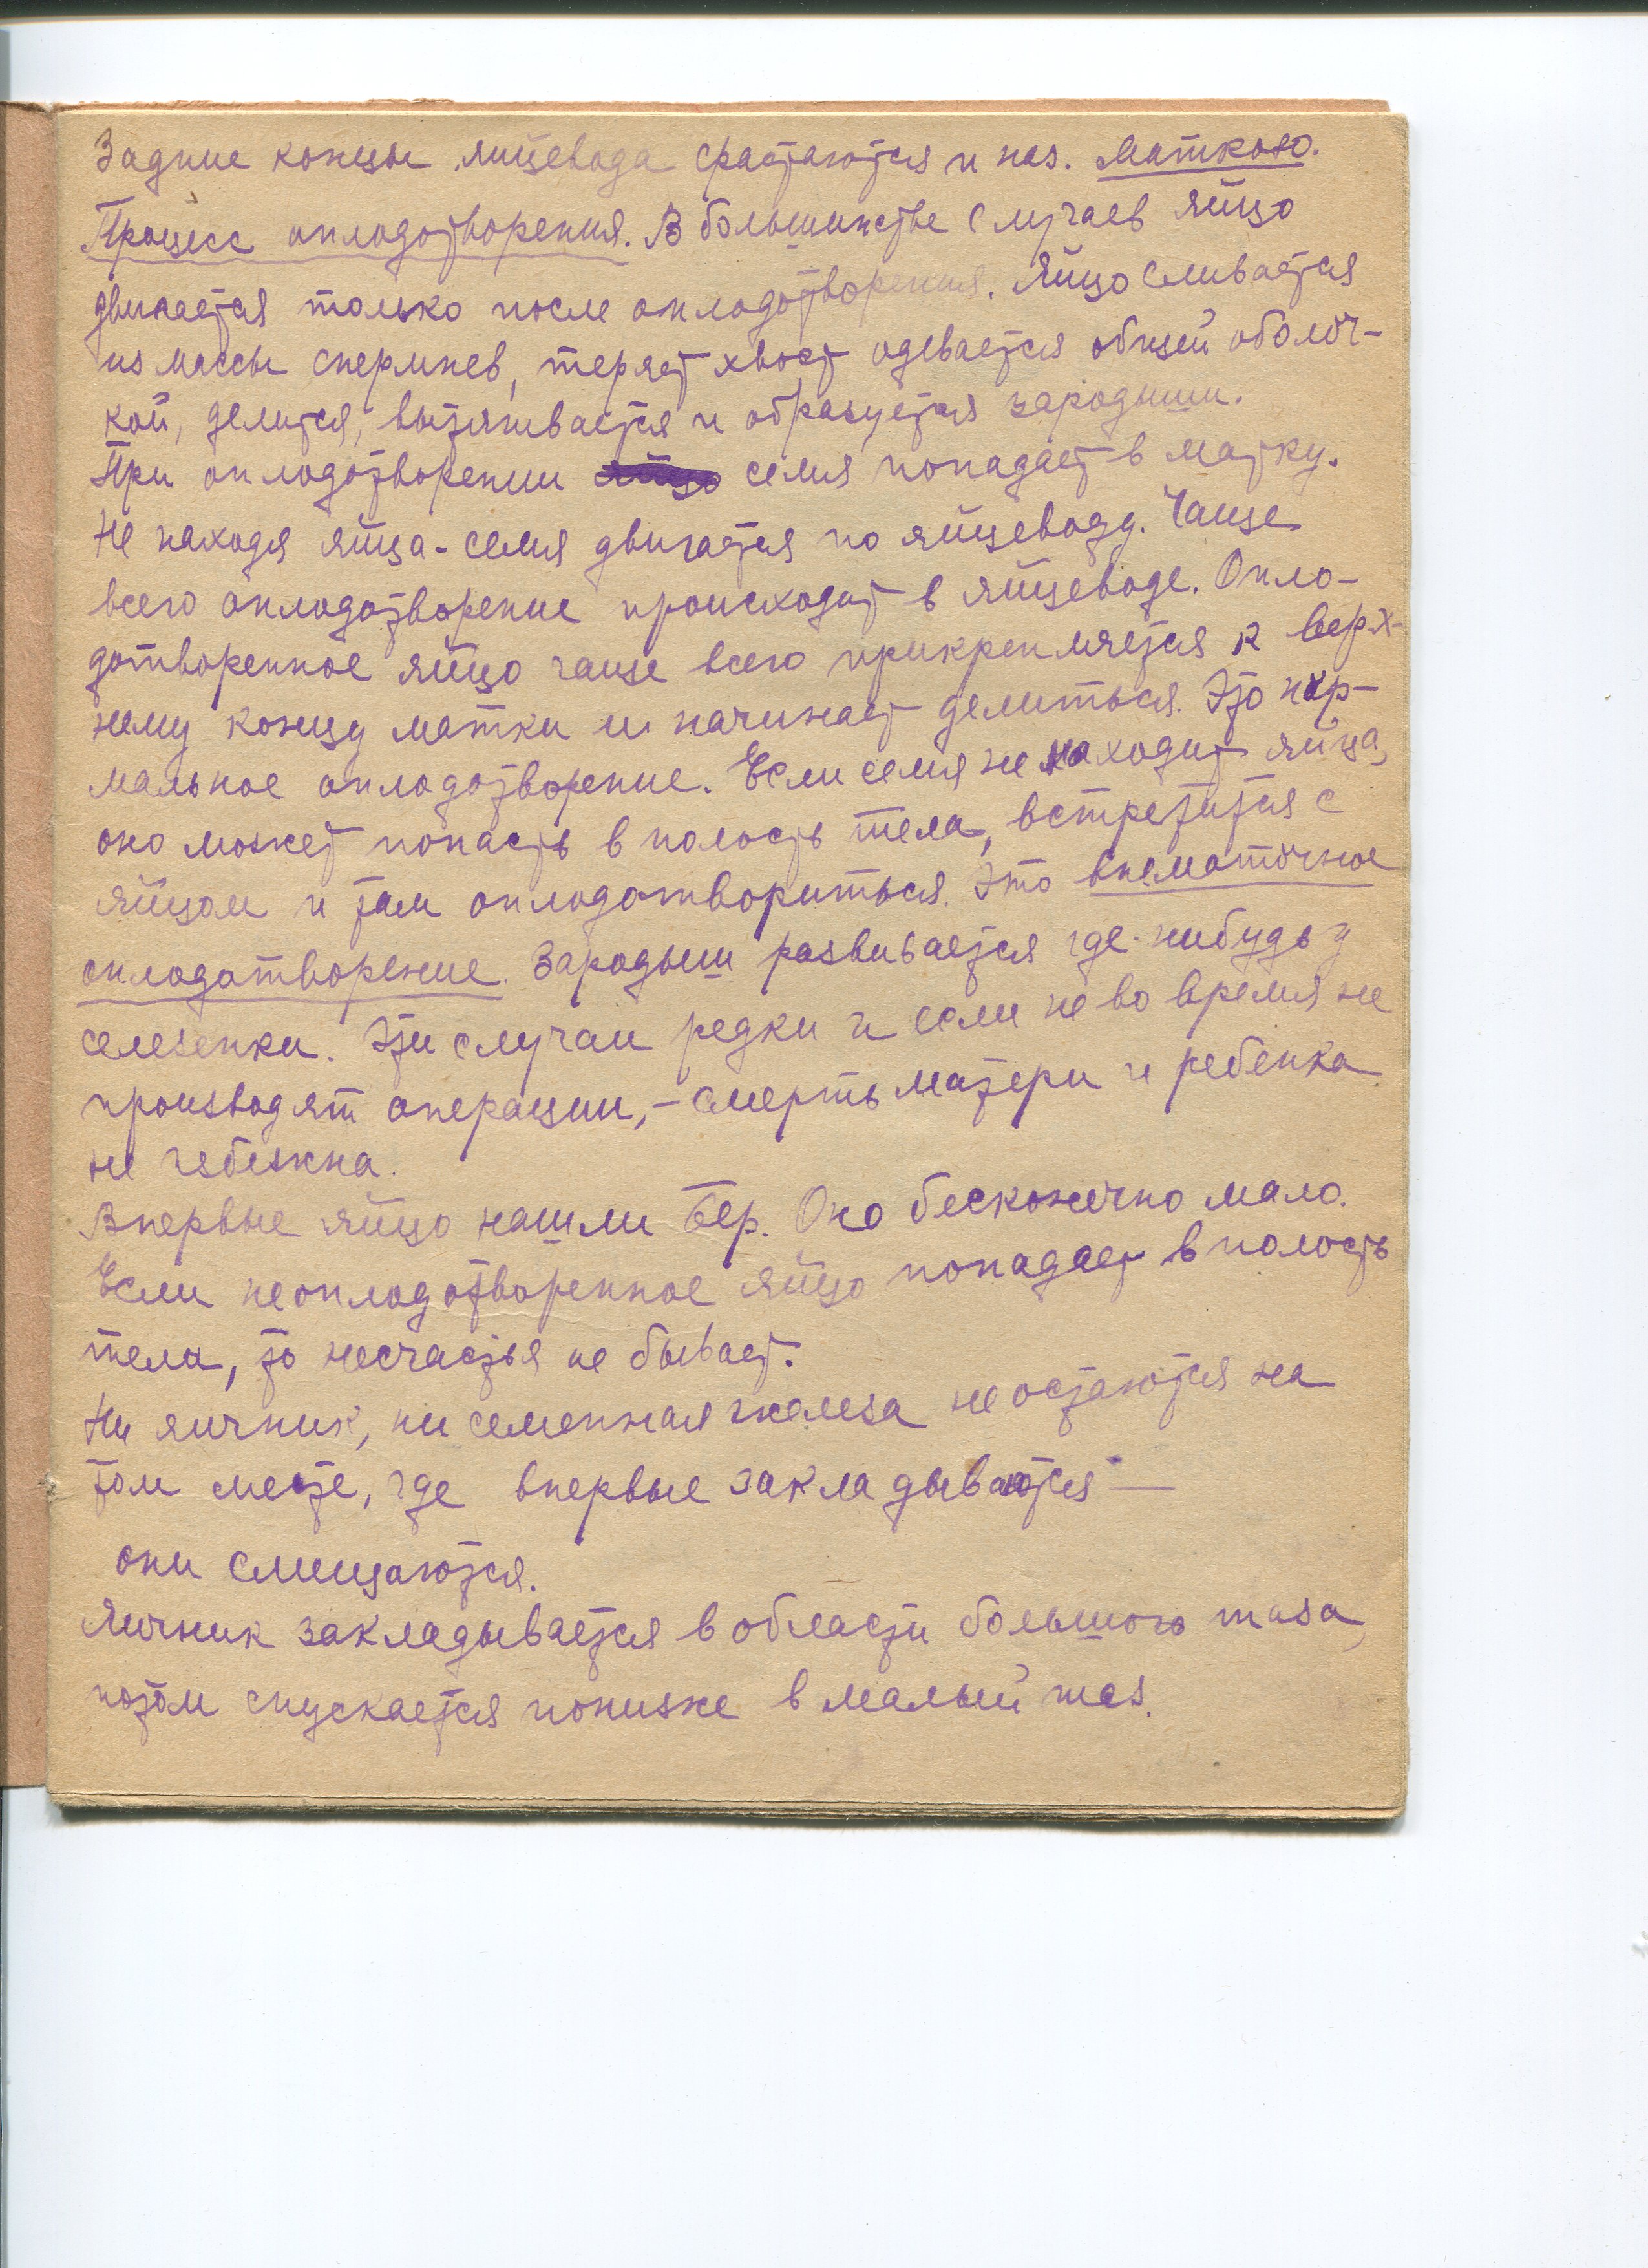 Задние концы яицевода срастаются и наз. маткою.
Процесс оплодотворения. В большинстве случаев яйцо
двигается только после оплодотворения. Яйцо сливается
из массы спермиев, теряет хвост одевается общей оболоч-
кой, делится, вытягивается и образуется зародыш.
При оплодотворении яйцо семя попадает в матку.
Не находя яйца - семя двигается по яйцеводу. Чаще
всего оплодотворение происходит в яйцеводе. Опло-
дотворенное яйцо чаще всего прикрепляется к верх-
нему концу матки и начинает делиться. Это нор-
мальное оплодотворение. Если семя не находит яйца,
оно может попасть в полость тела, встретится с
яйцом и там оплодотвориться. Это внематочное
оплодотворение. Зародыш развивается где-нибудь у
селезенки. Эти случаи редки и если не во время не
производят операции, - смерть матери и ребенка
не избежна.
Впервые яйцо нашли Бэр. Оно бесконечно мало.
Если неоплодотворенное яйцо попадает в полость
тела, то несчастья не бывает.
Ни яичник, ни семенная железа не остаются на
том месте, где впервые закладываются —
они смещаются.
Яичник закладывается в области большого таза,
потом спускается пониже в малый таз.